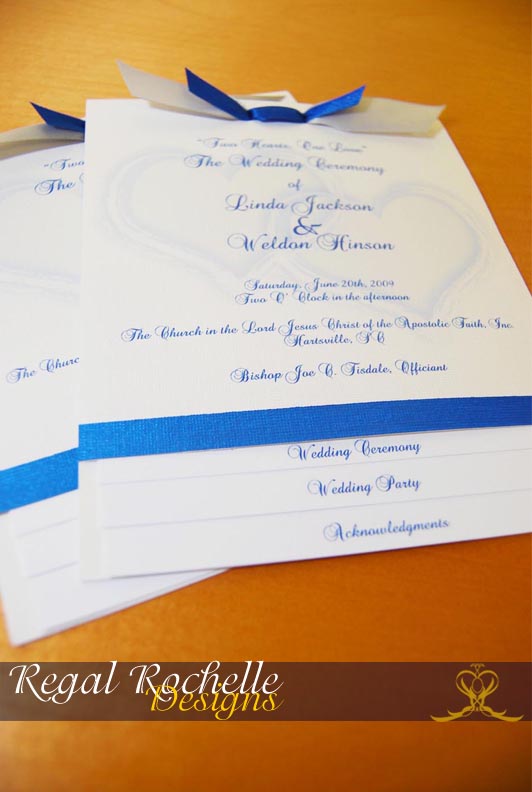 "Two Hearts, One Love"
The Wedding Ceremony
of
Linda Jackson
&
Weldon Hinson
Saturday, June 20th, 2009
Two O' Clock in the afternoon
The Church in the Lord Jesus Christ of the Apostolic Faith, Inc.
Hartsville, SC
Bishop Joe C. Tisdale, Officiant
Wedding Ceremony
Wedding Party
Acknowledgments
"Two
The
The Church
Regal Rochelle
Designs